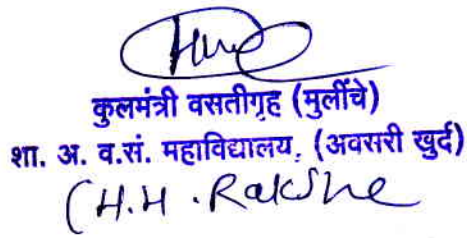 कुलमंत्री वसतीगृह (मुलींचे)
शा. अ. व.सं. महाविद्यालय, (अवसरी खुर्द)
(H.H. Rakshe